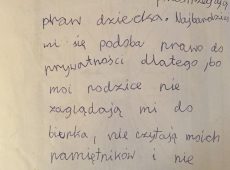 praw dziecka. Najbardziej
mi się podoba prawo do
prywatności dlatego, bo
moi rodzice nie
zaglądają mi do
biurka, nie czytają moich
pamiętników i nie